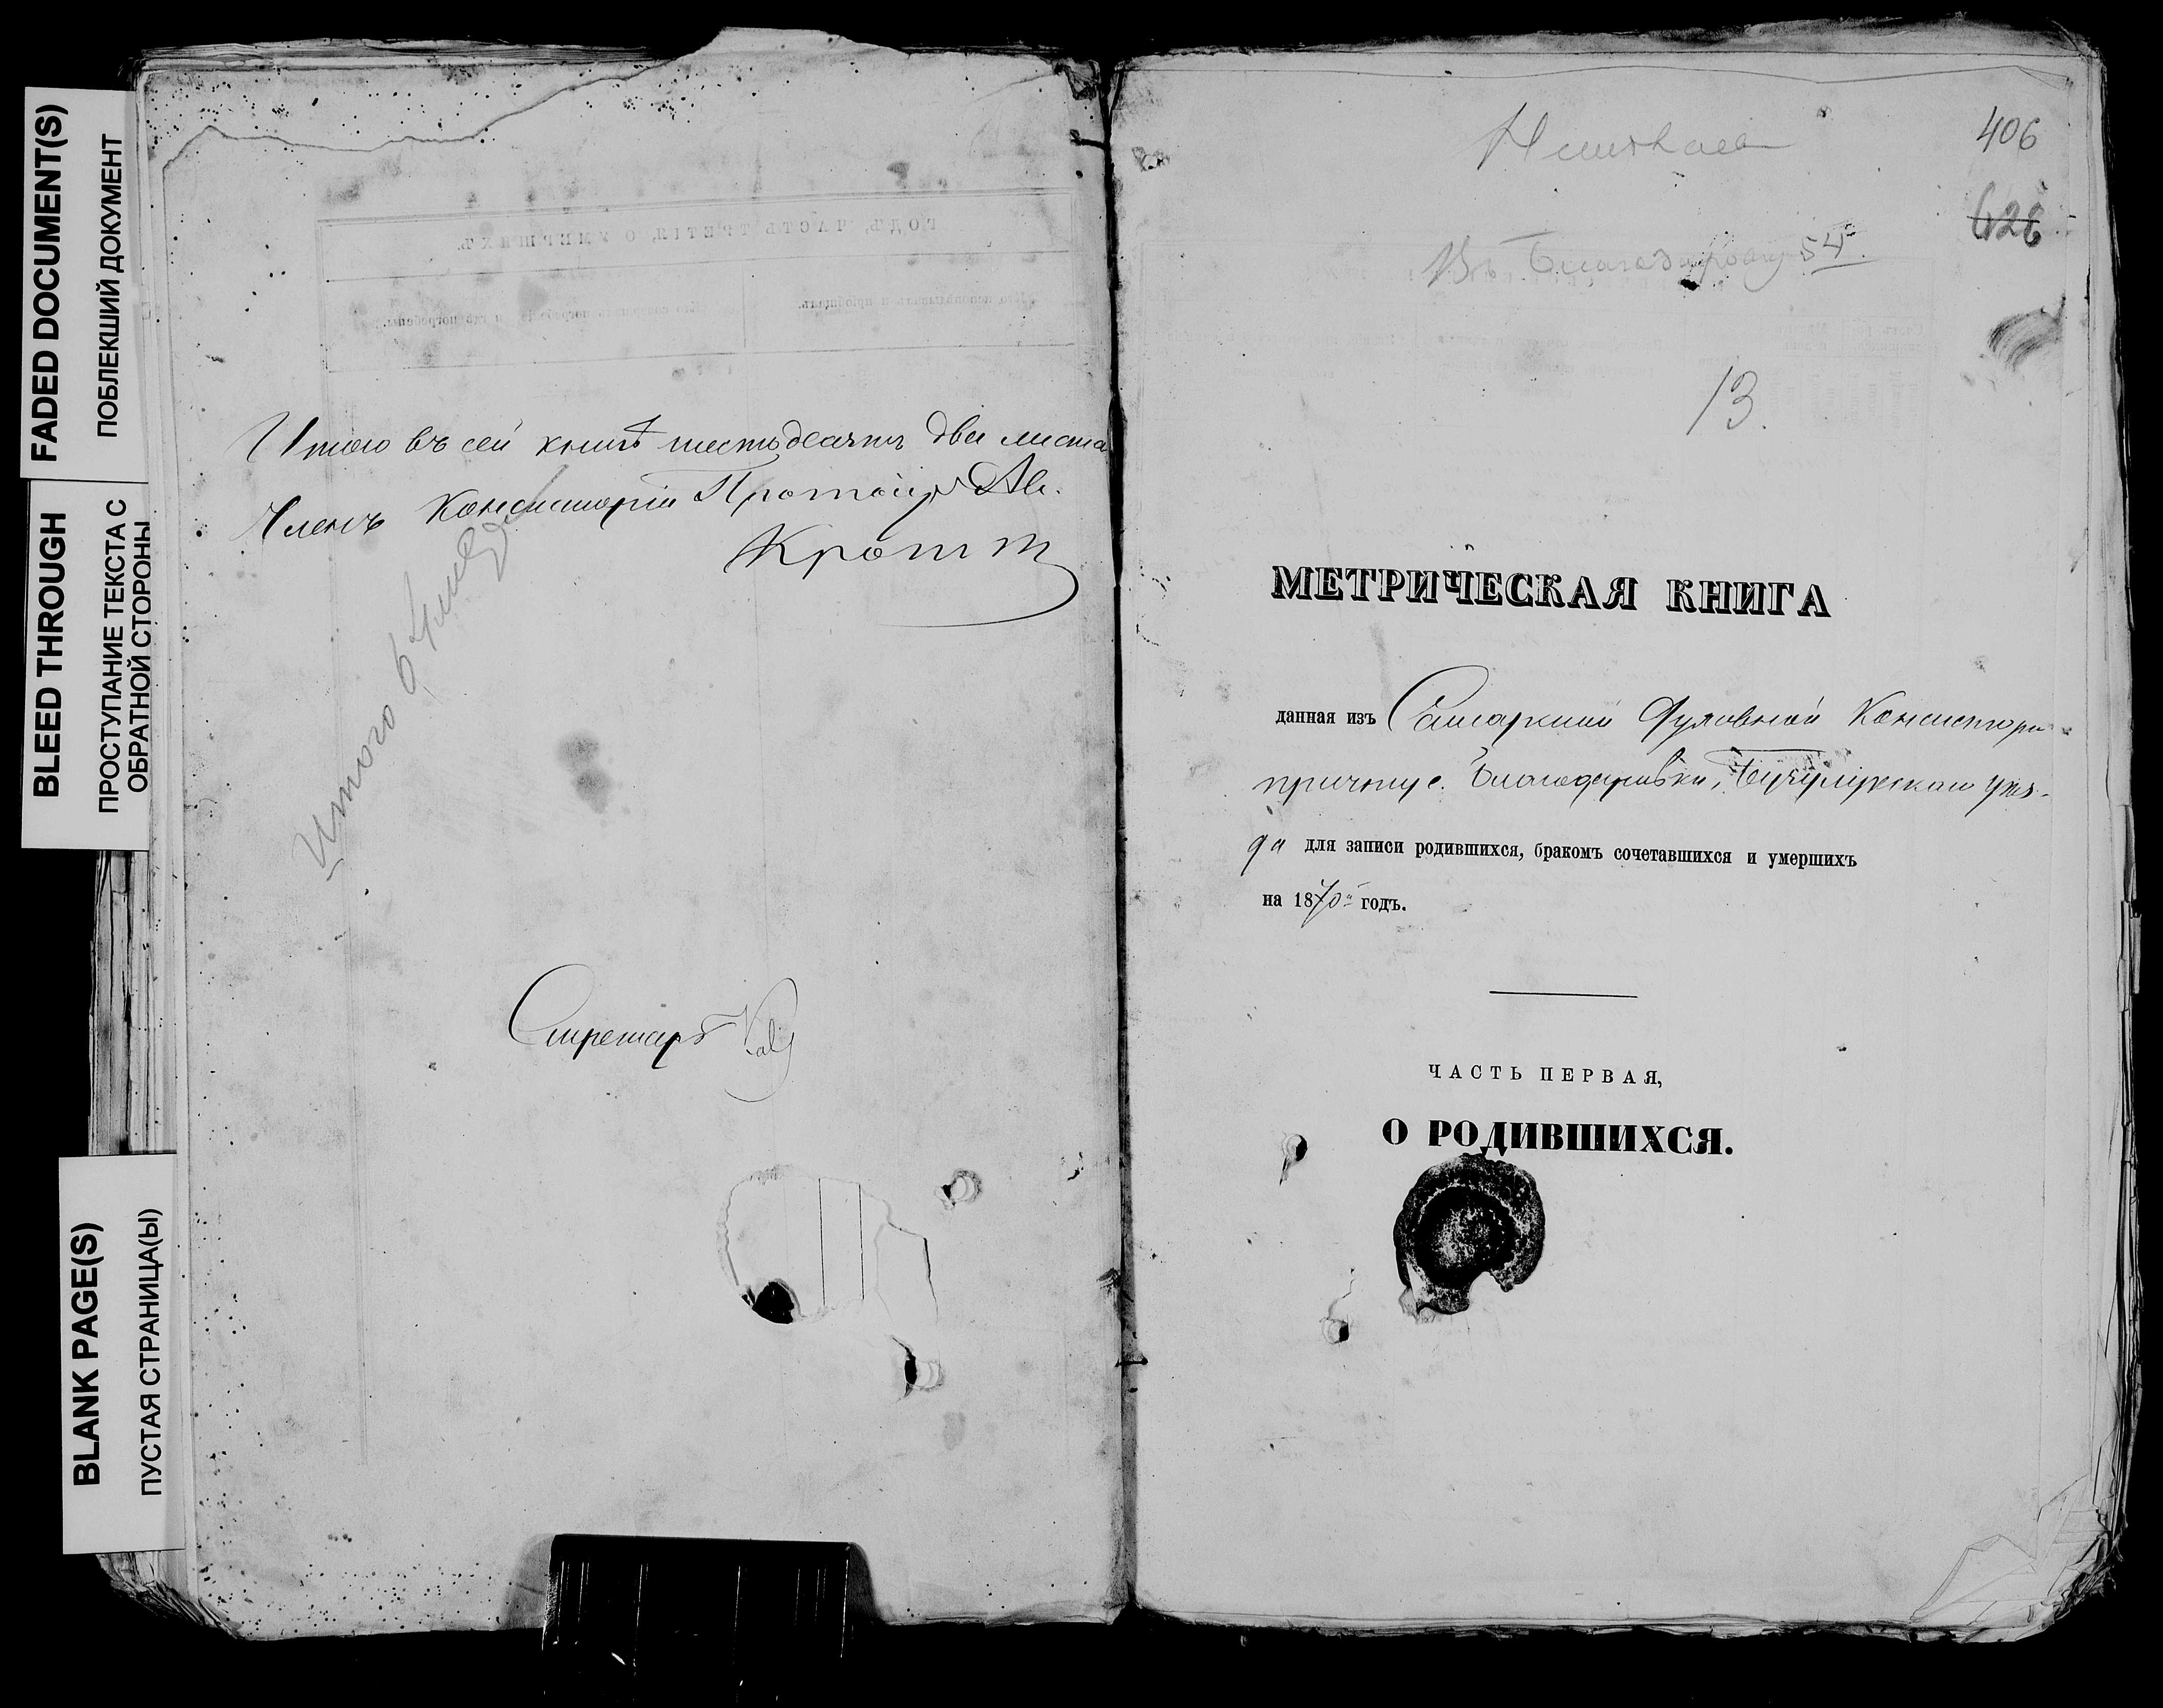 FADED DOCUMENT(S)
ПОБЛЕКШИЙ ДОКУМЕНТ
BLEED THROUGH
ПРОСТУПАНИЕ ТЕКСТА С
ОБРАТНОЙ СТОРОНЫ
BLANK PAGE(S)
ПУСТАЯ СТРАНИЦА(Ы)
ГОДЪ, ЧАСТЬ ТРЕТІЯ, О УМЕРШИХЪ.
Итого въ сей книгѣ шестьдесятъ два листа
Членъ Консисторіи
Итого
Секретарь
406
626
Въ 54
13.
МЕТРИЧЕСКАЯ КНИГА
данная изъ Самарской Духовной Консисторіи
причту с. Благодаровки, Бугурусланскаго уѣз-
да для записи родившихся, бракомъ сочетавшихся и умершихъ
на 1870й годъ.
ЧАСТЬ ПЕРВАЯ,
О РОДИВШИХСЯ.